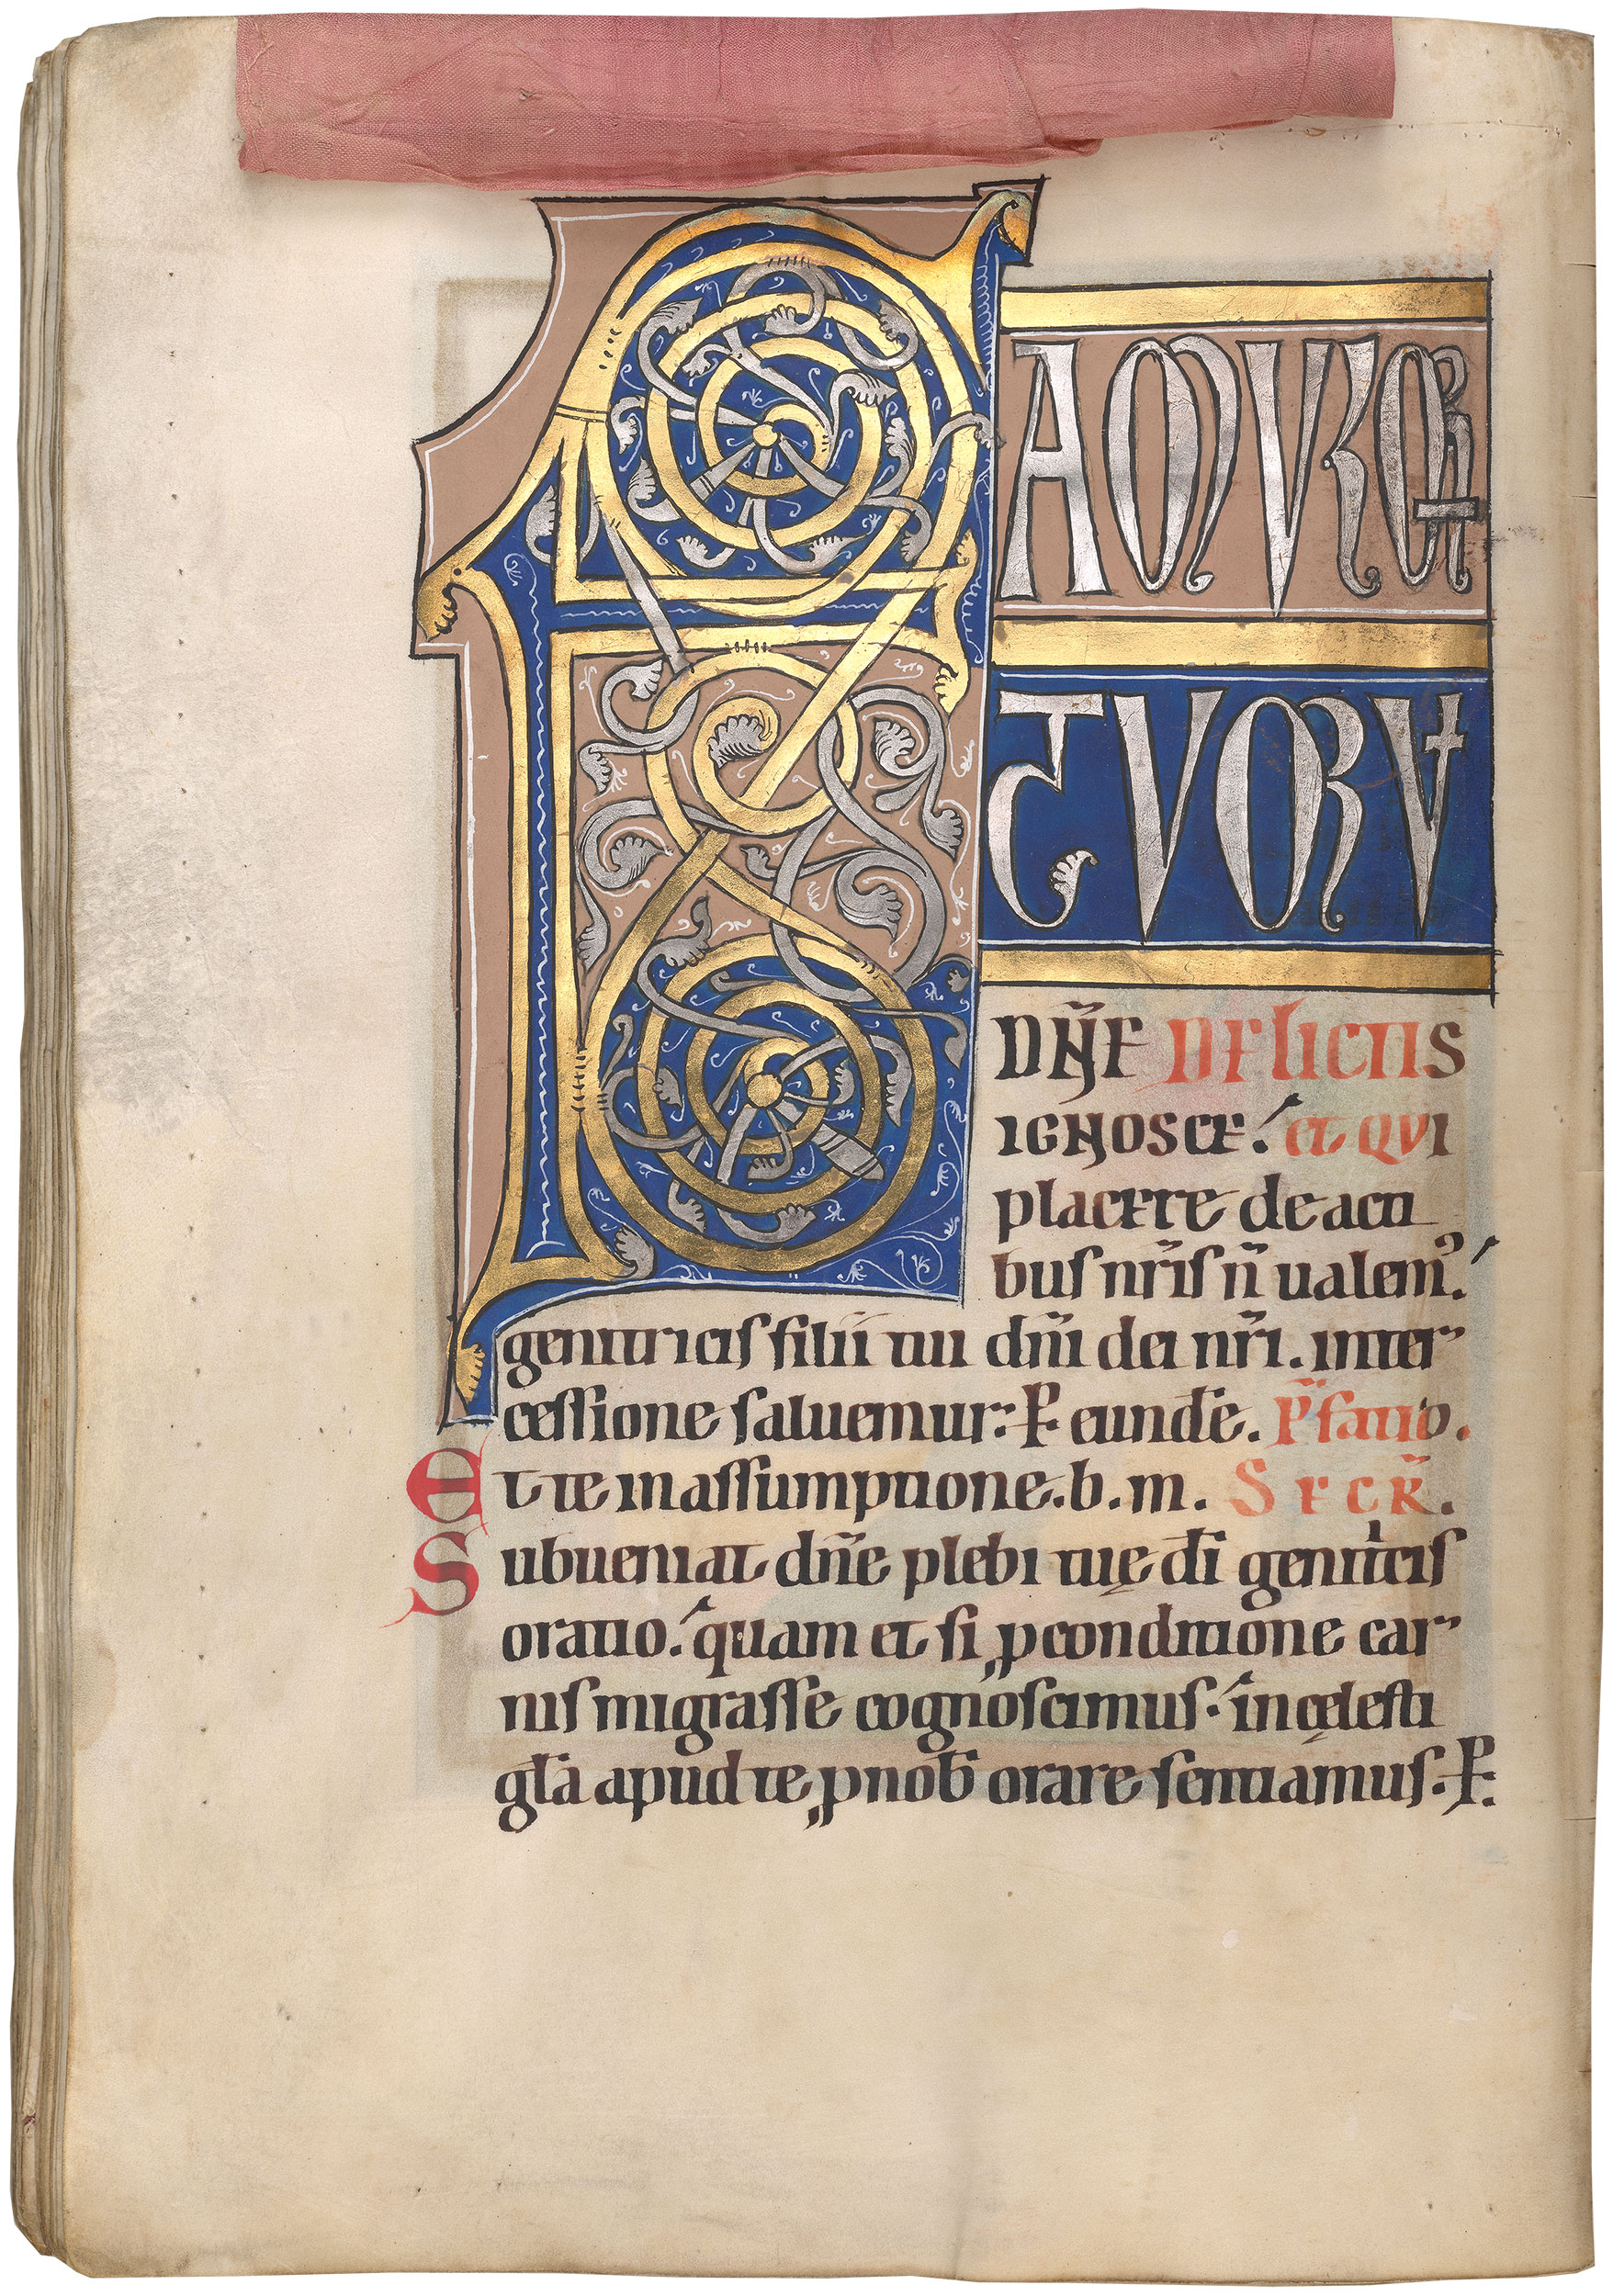 FAMULOR
TUORU
DÑE DELICTIS
IGNOSCE. ET QUI
placere de acti
bus nr̄is n̄ ualem⁹.
genitricis filii tui dn̄i dei nr̄i. inter
cessione saluemur: P eundē. P̄fatio.
Et te in assumptione. b. m. SECR̄.
Subueniat dn̄e plebi tuę dī genitͥcis
oratio. quam et si ꝓ conditione car
nis migrasse cognoscimus. in cęlesti
głā apud te ꝓ nob̄ orare sentiamus. P.